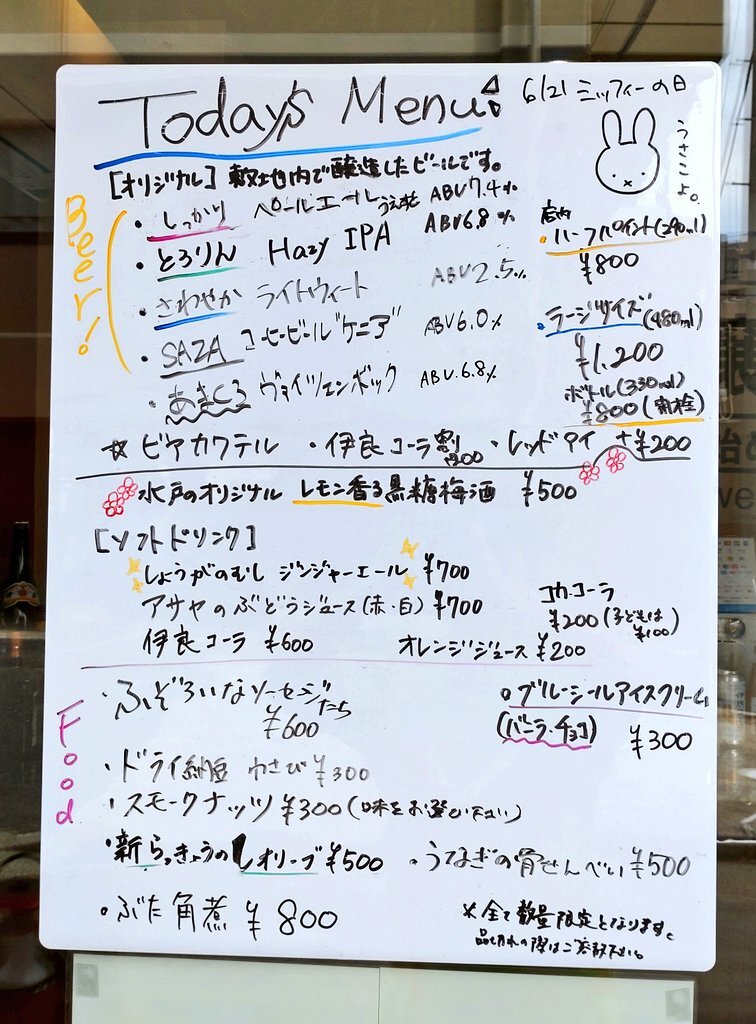 Today's Menu!
6/21 ミッフィーの日
うさこよ。
[オリジナル] 敷地内で醸造したビールです。
Beer!
・しっかり ペールエール ABV7.4%
・とろりん Hazy IPA ABV6.8%
・さわやか ライトウィート ABV2.5%
・SAZA コーヒービール"ケニア" ABV6.0%
・あきくろ ヴァイツェンボック ABV.6.8%
店内
・ハーフパイント(290ml)
¥800
・ラージサイズ(480ml)
¥1,200
ボトル(330ml)
¥800(開栓)
☆ ビアカクテル ・伊良コーラ割り ・レッドアイ +¥200
水戸のオリジナル レモン香る黒糖梅酒 ¥500
[ソフトドリンク]
しょうがのむし ジンジャーエール ¥700
アサヤのぶどうジュース(赤・白) ¥700
伊良コーラ ¥600
オレンジジュース ¥200
コカ・コーラ
¥200(子どもは
¥100)
Food
・ふぞろいなソーセージたち
¥600
・ドライ納豆 わさび ¥300
・スモークナッツ ¥300(味をお選び下さい)
・新らっきょうのしオリーブ ¥500
・ぶた角煮 ¥800
・ブルーシールアイスクリーム
(バニラ・チョコ)
¥300
・うなぎの骨せんべい ¥500
※全て数量限定となります。
品切れの際はご容赦下さい。